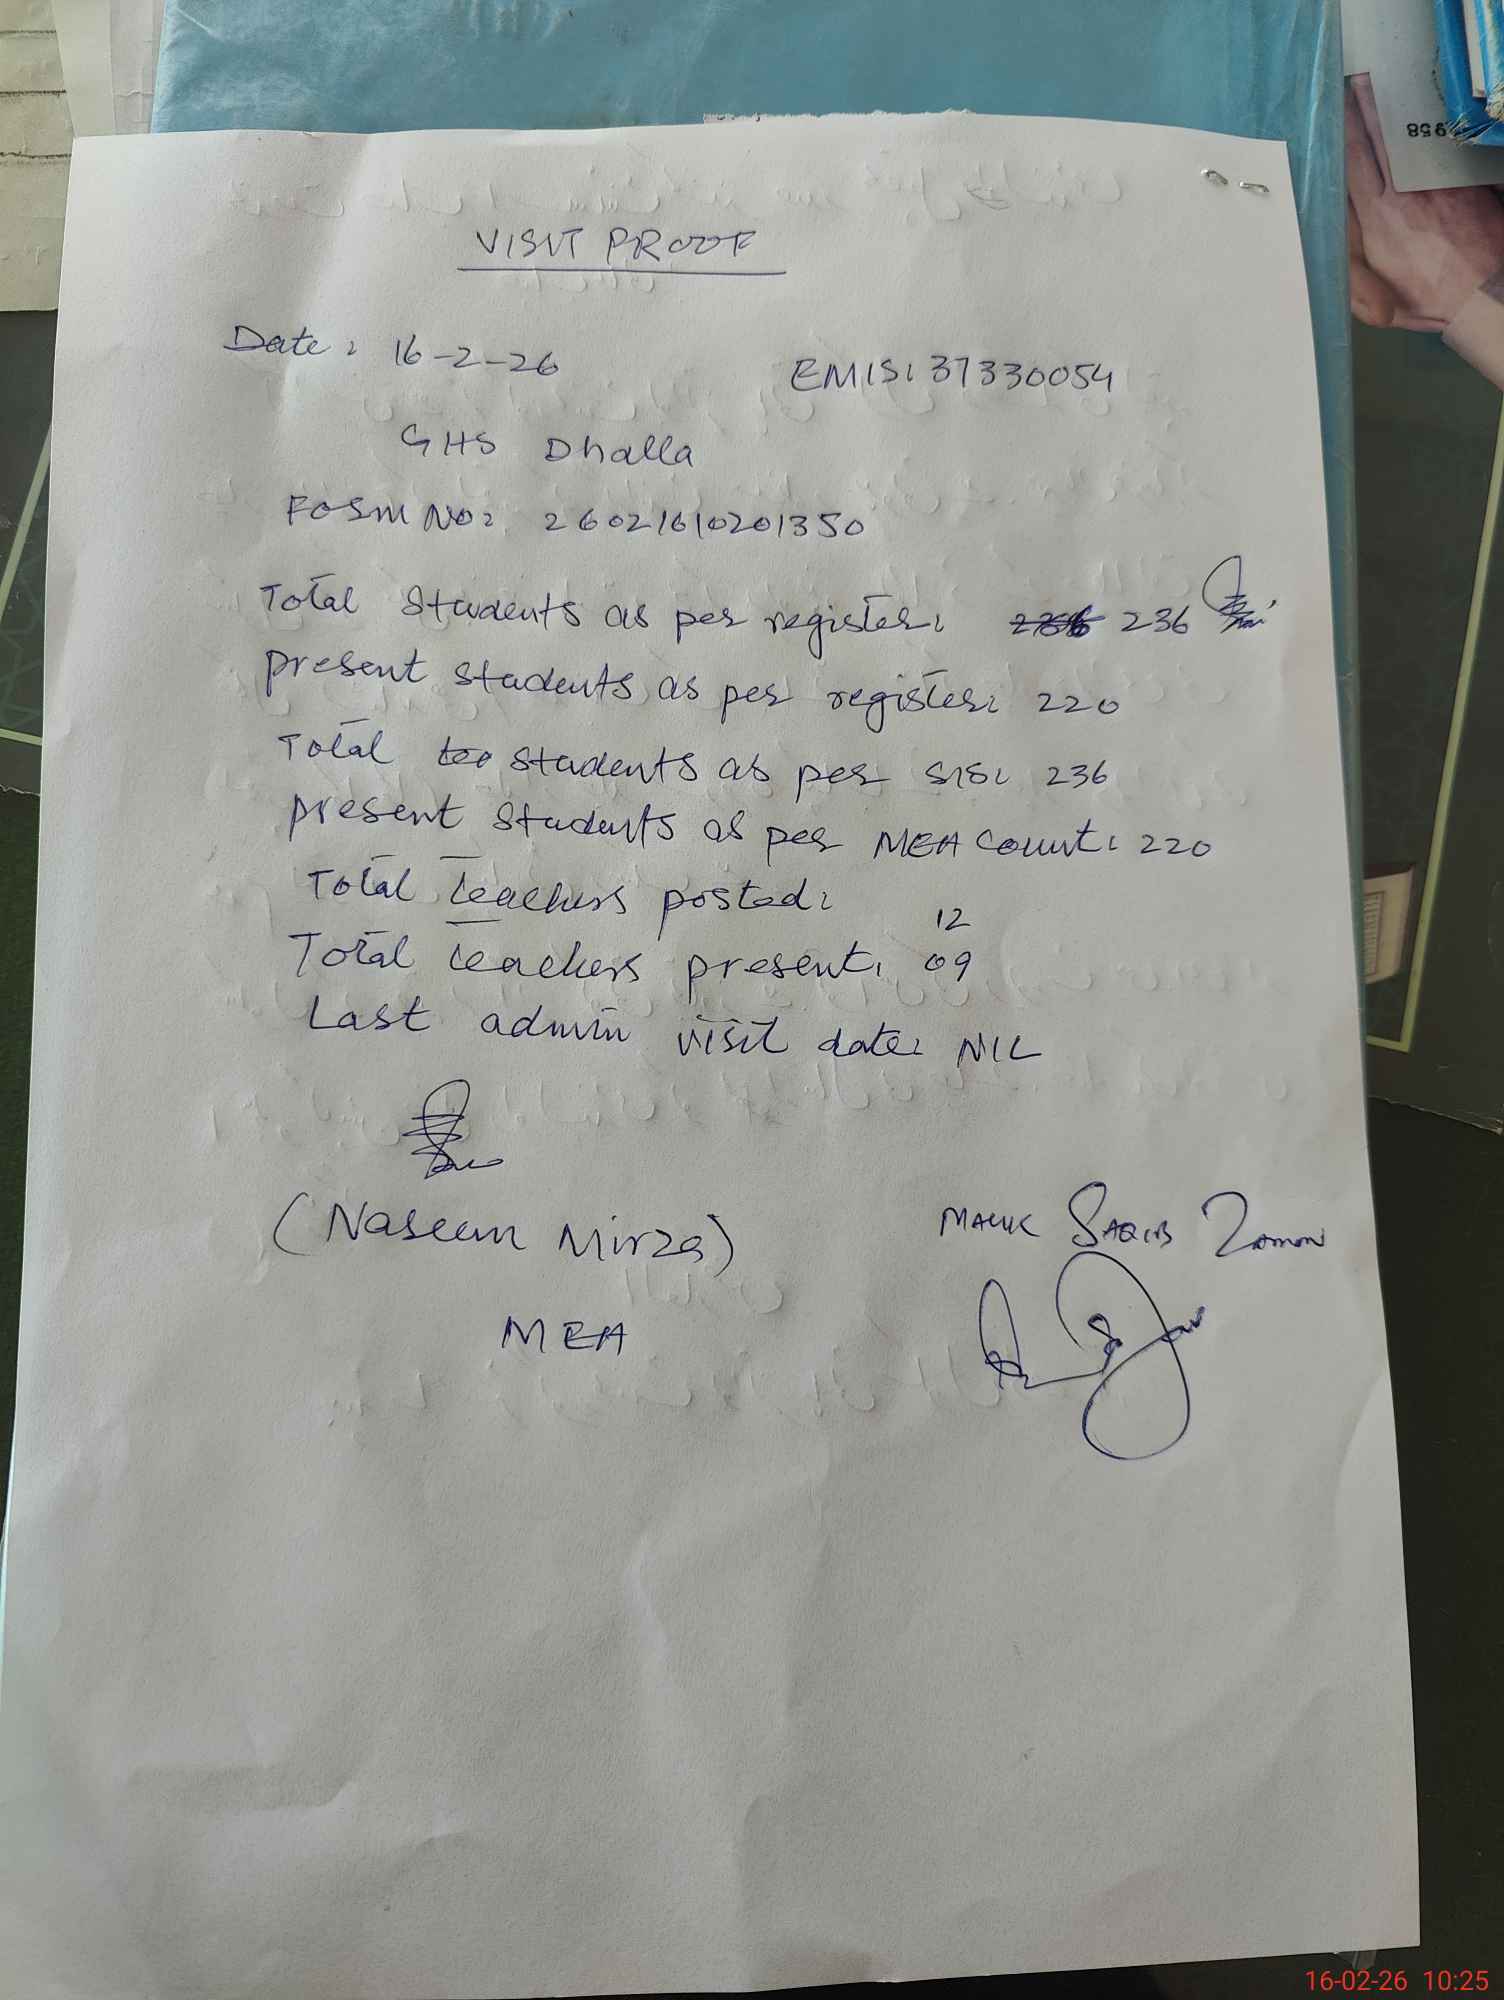 VISIT PROOF
Date: 16-2-26
EMIS: 37330054
GHS Dhalla
Form No: 26021610201350
Total Students as per register: 236
present students as per register: 220
Total students as per SIS: 236
present students as per MEA count: 220
Total teachers posted: 12
Total teachers present: 09
Last admin visit date: NIL
(Naseem Mirza)
MALIK SAQIB Zaman
MEA
958
16-02-26 10:25